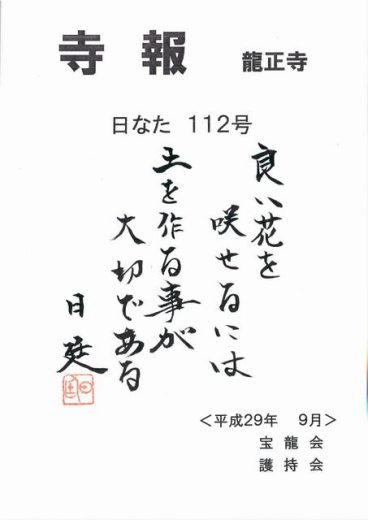 寺報 龍正寺
日なた 112号
良い花を
咲せるには
土を作る事が
大切である
日延
<平成29年 9月>
宝龍会
護持会